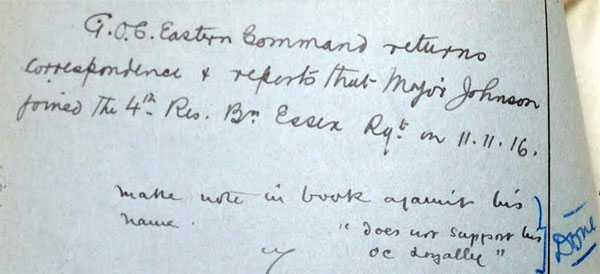 G.O.C. Eastern Command returns
correspondence & reports that Major Johnson
joined the 4th Res. Bn Essex Rgt on 11.11.16.
make note in book against his
name.
"does not support his
OC loyally"
Done